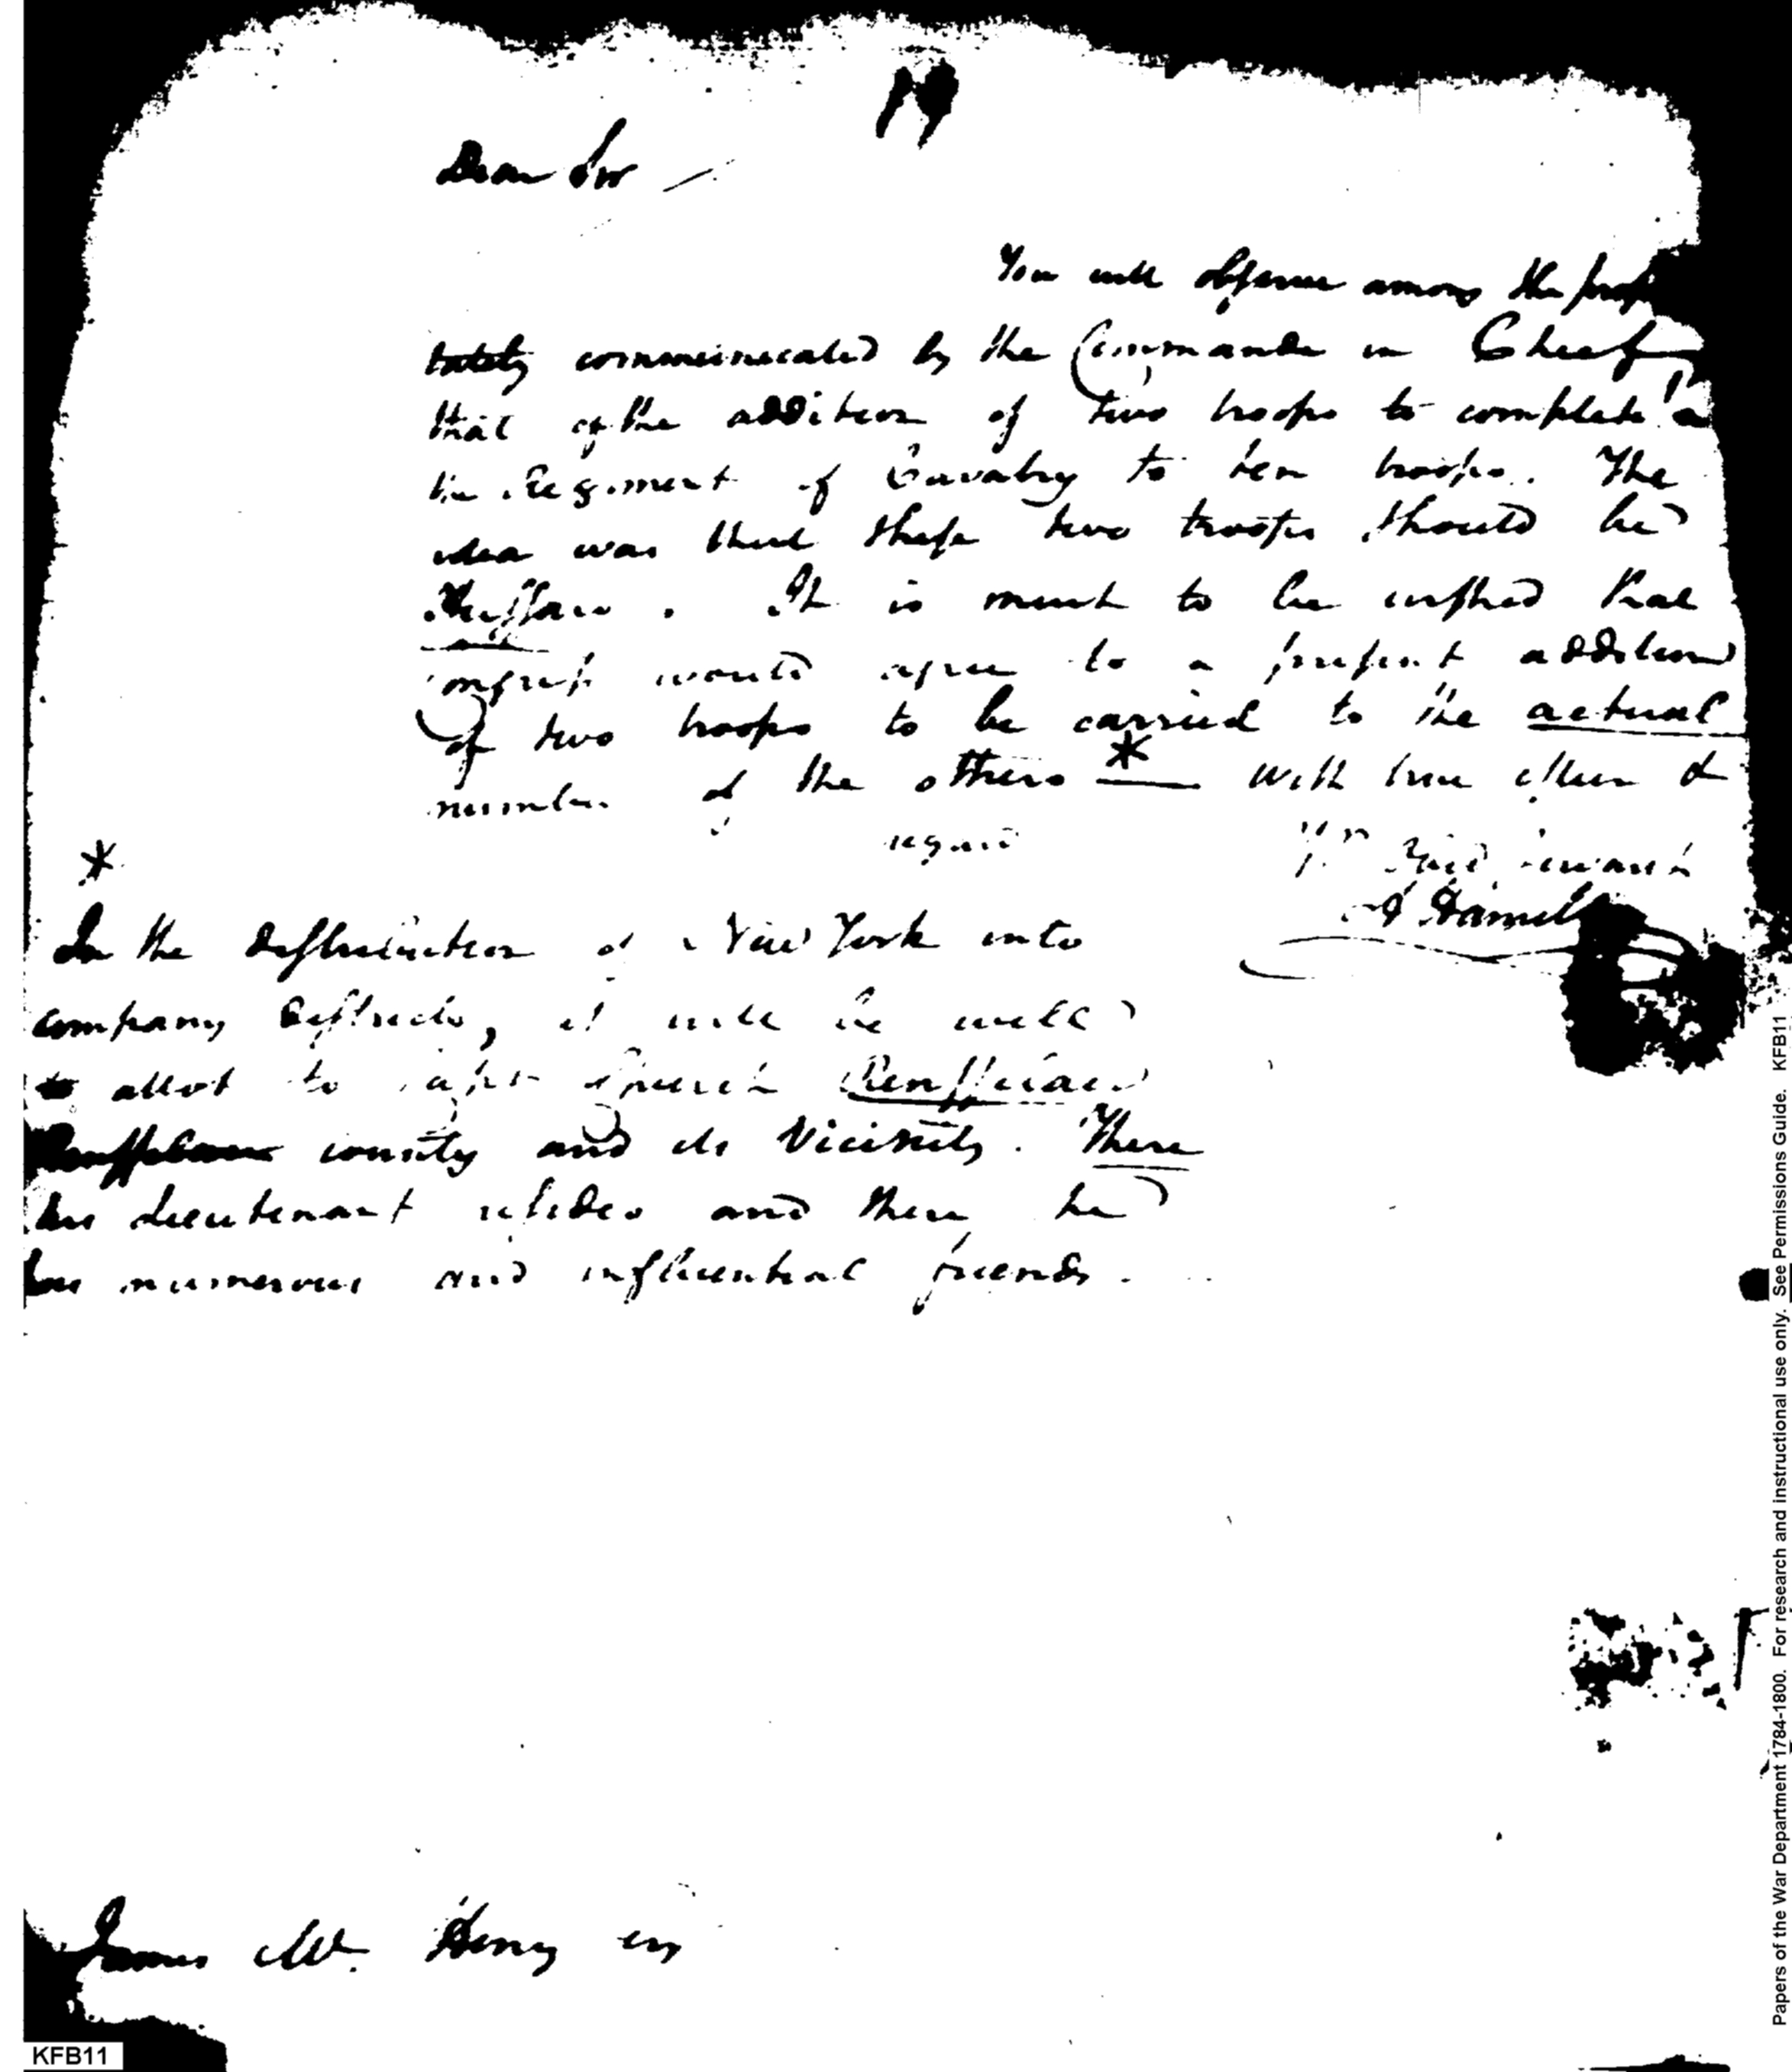 Dear Sir
You will observe among the
communicated by the Commander in Chief
that of the addition of two troops to complete
the Regiment of Cavalry to ten troops. The
idea was that these two troops should be
Hussars. It is much to be wished that
Congress would agree to a present addition
of two troops to be carried to the actual
number of the others * With true esteem &
regard Yr Obed servant
A Hamil
*
In the distribution of New York into
company districts, it will be well
to allot to Capt Church Rensselaer
county and its Vicinity. There
his Lieutenant resides and there he
has numerous and influential friends.
James Mc. Henry esq
KFB11
Papers of the War Department 1784-1800. For research and instructional use only. See Permissions Guide. KFB11